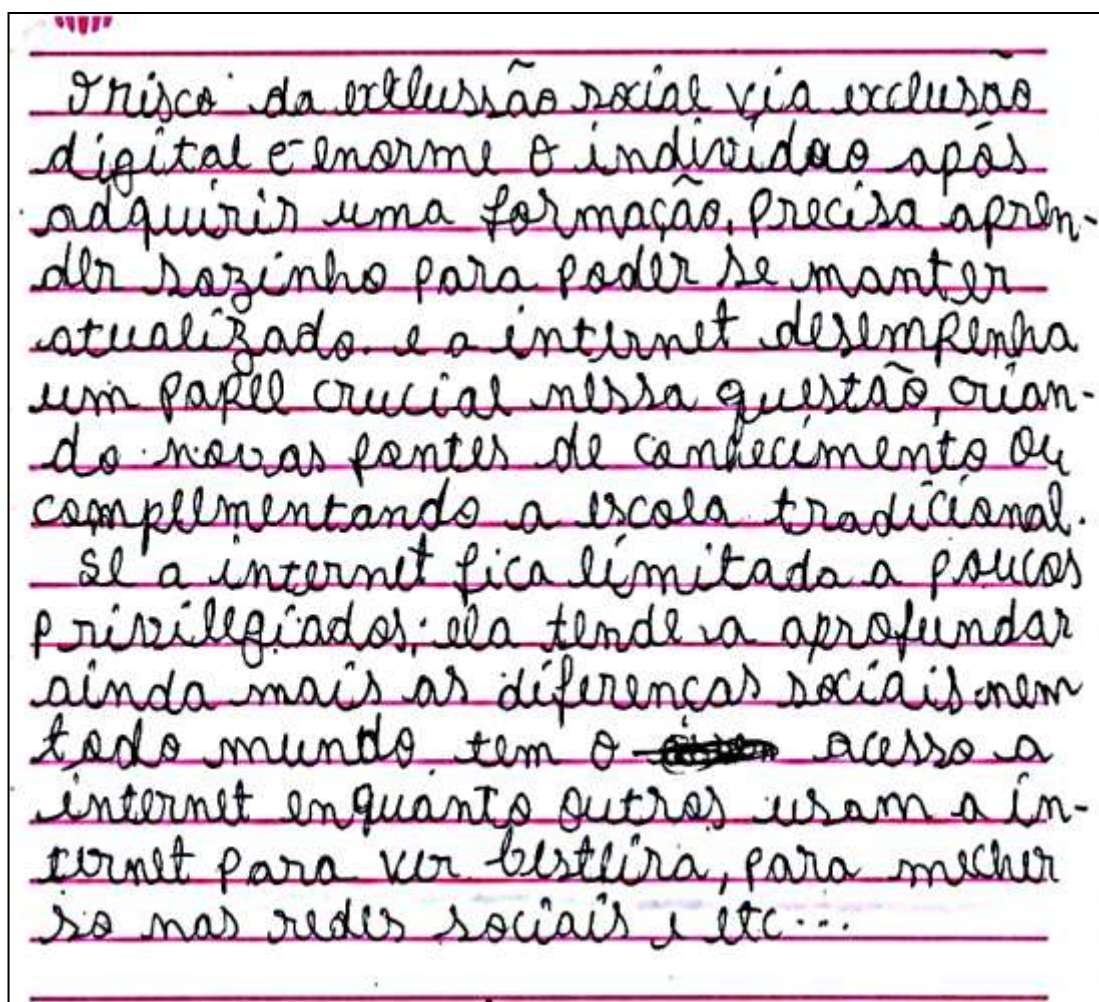 O risco da excllussão social via exclusão
digital é enorme o individuo após
adquirir uma formação, precisa apren-
der sozinho para poder se manter
atualizado. e a internet desempenha
um papel crucial nessa questão, crian-
do novas fontes de conhecimento ou
complementando a escola tradicional.
Se a internet fica limitada a poucos
privilegiados, ela tende a aprofundar
ainda mais as diferenças sociais. nem
todo mundo tem o acesso a
internet enquanto outros usam a in-
ternet para ver besteira, para mecher
so nas redes sociais, etc...